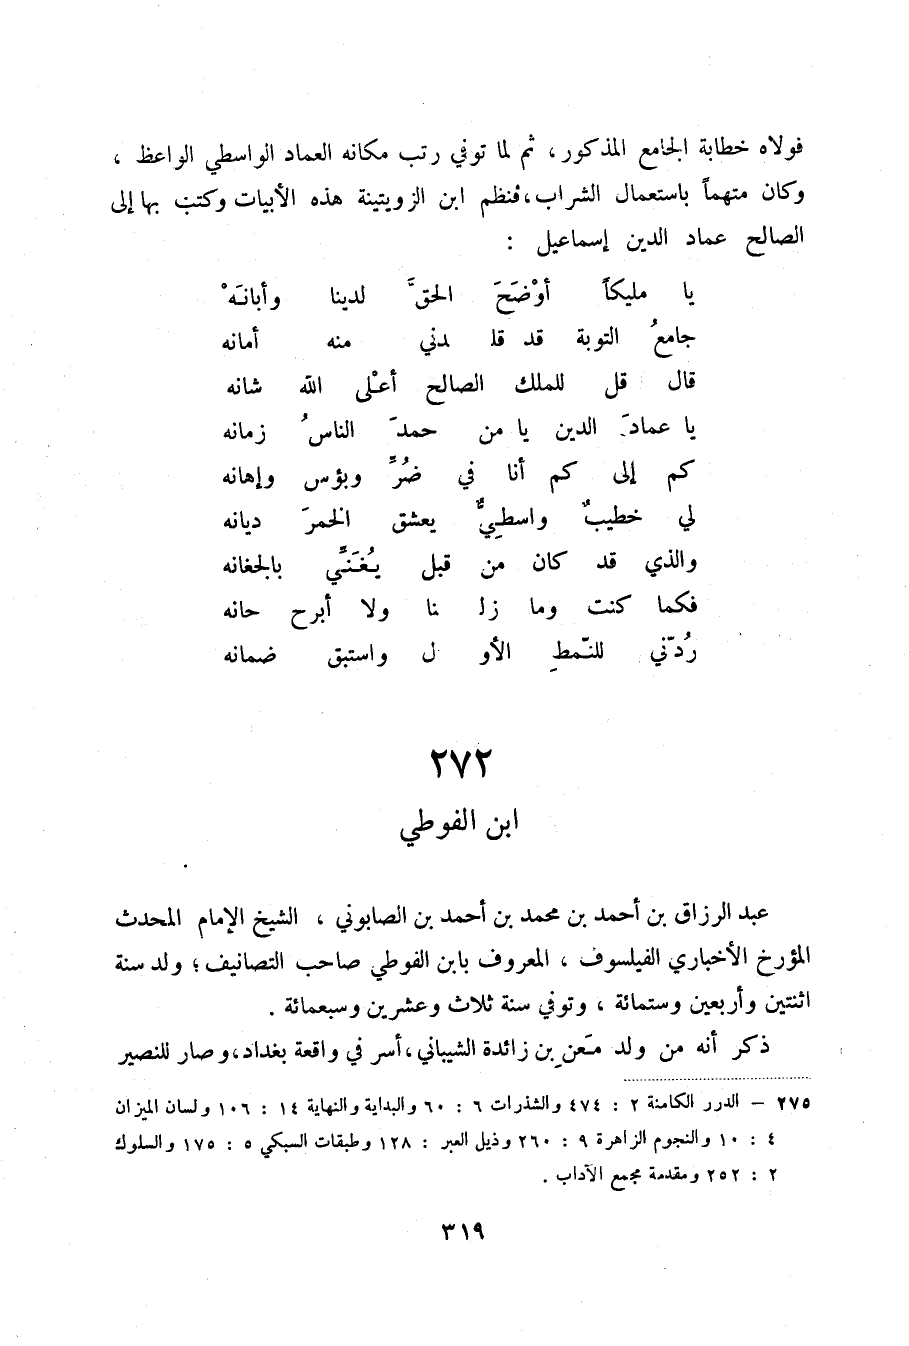 فولاه خطابة الجامع المذكور، ثم لما توفي رتب مكانه العماد الواسطي الواعظ ،
وكان متهماً باستعمال الشراب، فنظم ابن الزويتينة هذه الأبيات وكتب بها إلى
الصالح عماد الدين إسماعيل :
يا مليكاً أوْضَحَ الحقَّ لدينا وأبانَهْ
جامعُ التوبة قد قلدني منه أمانه
قال قل للملك الصالح أعْلى الله شانه
يا عمادَ الدين يا من حمدَ الناسُ زمانه
كم إلى كم أنا في ضُرٍّ وبؤس وإهانه
لي خطيبٌ واسطيٌّ يعشق الخمرَ ديانه
والذي قد كان من قبل يُغَنّي بالجغانه
فكما كنت وما زلنا ولا أبرح حانه
رُدّني للنّمطِ الأول واستبق ضمانه
٢٧٢
ابن الفوطي
عبد الرزاق بن أحمد بن محمد بن أحمد بن الصابوني ، الشيخ الإمام المحدث
المؤرخ الأخباري الفيلسوف ، المعروف بابن الفوطي صاحب التصانيف؛ ولد سنة
اثنتين وأربعين وستمائة ، وتوفي سنة ثلاث وعشرين وسبعمائة .
ذكر أنه من ولد مَعن بن زائدة الشيباني، أسر في واقعة بغداد، وصار للنصير
٢٧٥ – الدرر الكامنة ٢ : ٤٧٤ والشذرات ٦ : ٦٠ والبداية والنهاية ١٤ : ١٠٦ ولسان الميزان
٤ : ١٠ والنجوم الزاهرة ٩ : ٢٦٠ وذيل العبر : ١٢٨ وطبقات السبكي ٥ : ١٧٥ والسلوك
٢ : ٢٥٢ ومقدمة مجمع الآداب .
٣١٩